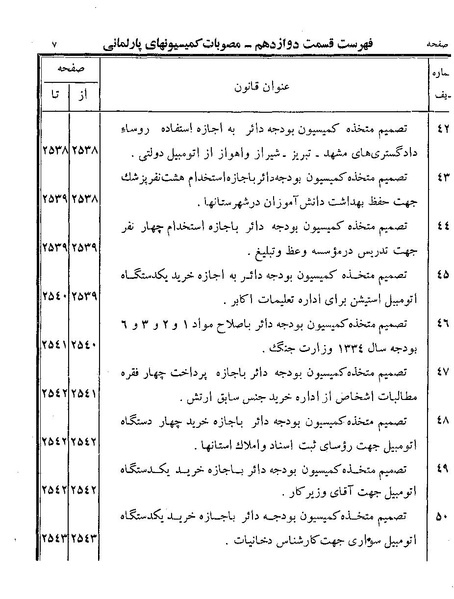 صفحه فهرست قسمت دوازدهم - مصوبات کمیسیونهای پارلمانی ۷
ماره عنوان قانون صفحه
یف از تا
۴۲ تصمیم متخذه کمیسیون بودجه دائر به اجازه استفاده روساء
دادگستری‌های مشهد - تبریز - شیراز واهواز از اتومبیل دولتی . ۲۵۳۸ ۲۵۳۸
۴۳ تصمیم متخذه کمیسیون بودجه دائر باجازه استخدام هشت نفر پزشک
جهت حفظ بهداشت دانش‌آموزان در شهرستانها . ۲۵۳۸ ۲۵۳۹
۴۴ تصمیم متخذه کمیسیون بودجه دائر باجازه استخدام چهار نفر
جهت تدریس در مؤسسه وعظ وتبلیغ . ۲۵۳۹ ۲۵۳۹
۴۵ تصمیم متخذه کمیسیون بودجه دائر به اجازه خرید یکدستگاه
اتومبیل استیشن برای اداره تعلیمات اکابر . ۲۵۳۹ ۲۵۴۰
۴۶ تصمیم متخذه کمیسیون بودجه دائر باصلاح مواد ۱ و ۲ و ۳ و ۶
بودجه سال ۱۳۳۴ وزارت جنگ . ۲۵۴۰ ۲۵۴۱
۴۷ تصمیم متخذه کمیسیون بودجه دائر باجازه پرداخت چهار فقره
مطالبات اشخاص از اداره خرید جنس سابق ارتش . ۲۵۴۱ ۲۵۴۲
۴۸ تصمیم متخذه کمیسیون بودجه دائر باجازه خرید چهار دستگاه
اتومبیل جهت رؤسای ثبت اسناد واملاک استانها . ۲۵۴۲ ۲۵۴۲
۴۹ تصمیم متخذه کمیسیون بودجه دائر باجازه خرید یکدستگاه
اتومبیل جهت آقای وزیر کار . ۲۵۴۲ ۲۵۴۲
۵۰ تصمیم متخذه کمیسیون بودجه دائر باجازه خرید یکدستگاه
اتومبیل سواری جهت کارشناس دخانیات . ۲۵۴۳ ۲۵۴۳